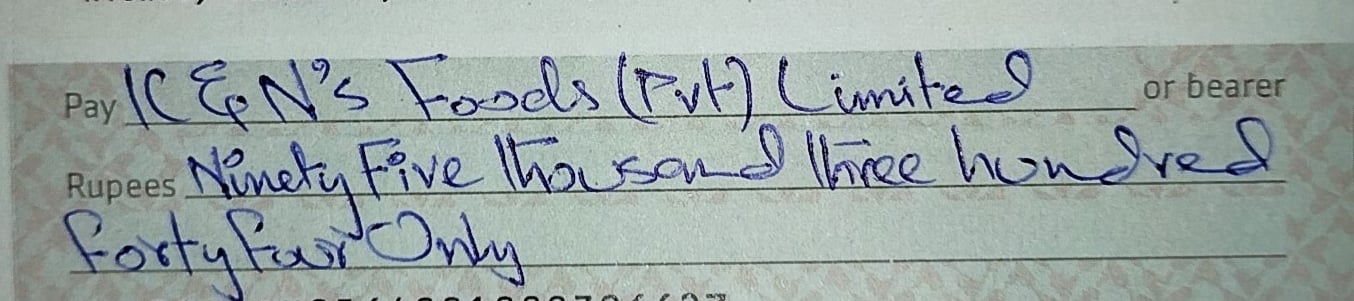 Pay K&N's Foods (Pvt) Limited or bearer
Rupees Ninety Five thousand three hundred
forty four Only